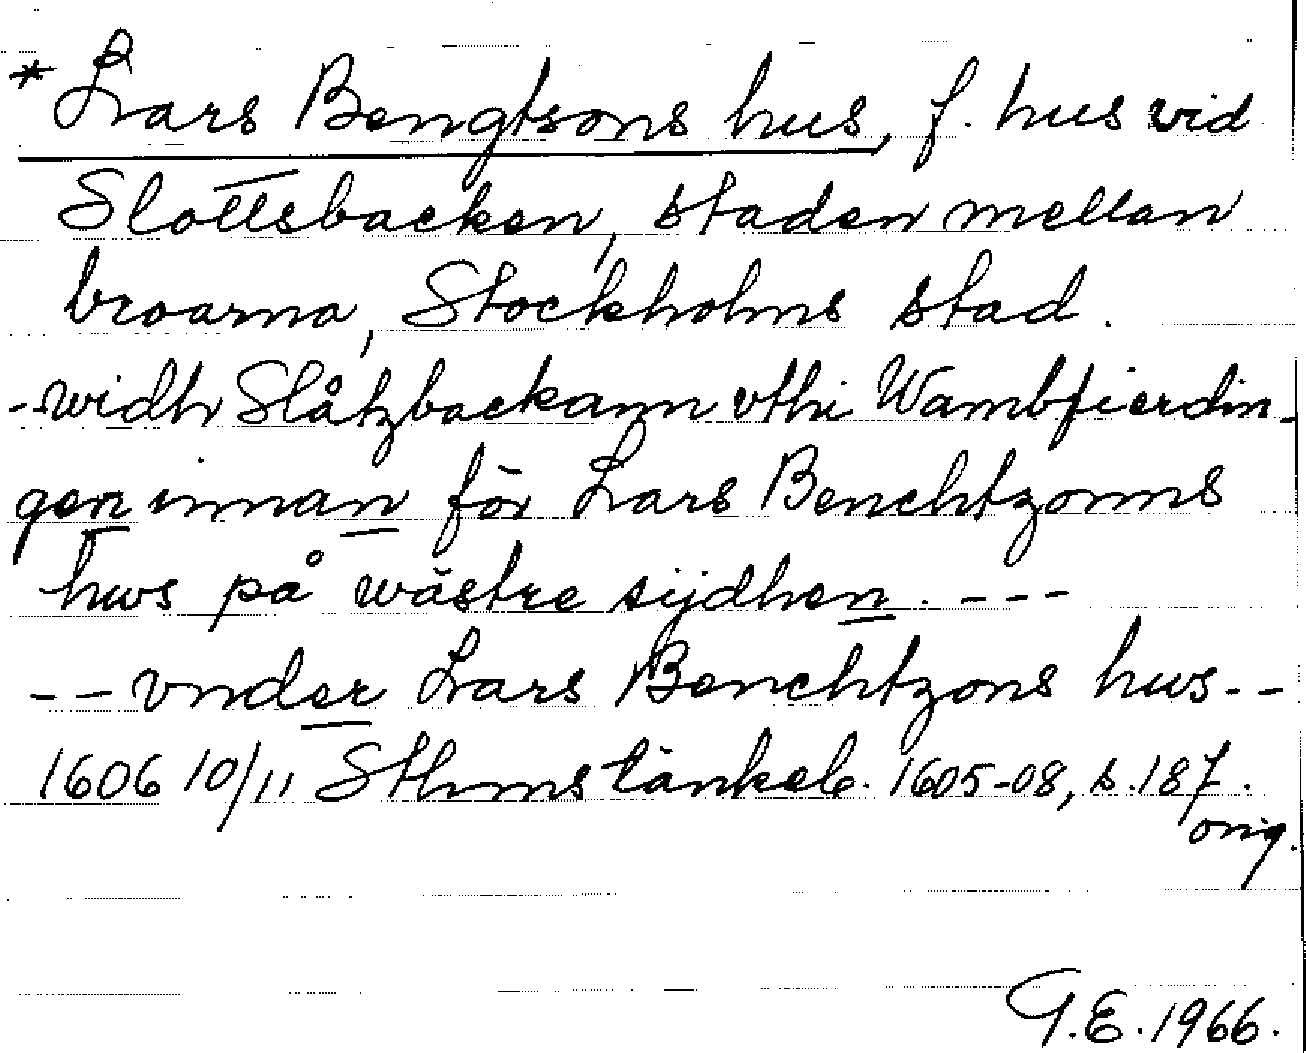 * Lars Bengtsons hus, f. hus vid
Slottsbacken, staden mellan
broarna, Stockholms stad.
- widh Slåtzbackann vthi Wambfierdin-
gen innan för Lars Benchtzonns
hws på wästre sijdhen. ---
-- vnder Lars Benchtzons hws--
1606 10/11 Sthms tänkeb. 1605-08, s. 187.
orig.
G.E. 1966.